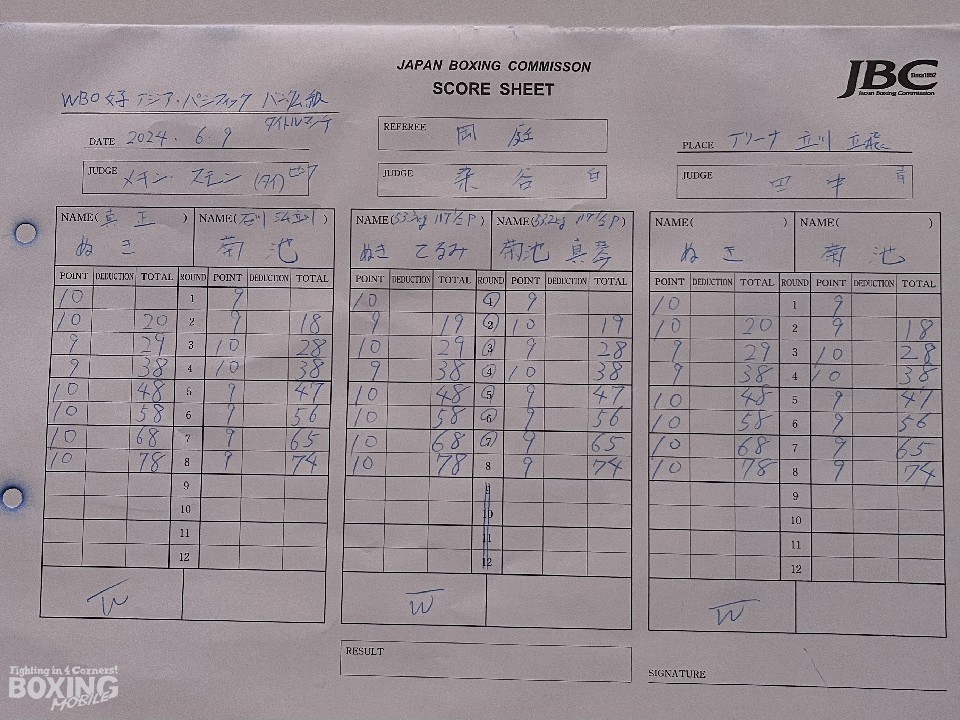 JAPAN BOXING COMMISSON
SCORE SHEET
JBC
Since1952
Japan Boxing Commission
WBO 女子 アジア・パシフィック バンタム級
タイトルマッチ
DATE 2024. 6. 9
REFEREE 岡 庭
PLACE アリーナ 立川 立飛
JUDGE (タイ) ピンク
JUDGE 染 谷 白
JUDGE 田 中 青
NAME( 真 正 ) NAME( 石川 )
ぬ き 菊 池
POINT DEDUCTION TOTAL ROUND POINT DEDUCTION TOTAL
10 1 9
10 20 2 9 18
9 29 3 10 28
9 38 4 10 38
10 48 5 9 47
10 58 6 9 56
10 68 7 9 65
10 78 8 9 74
9
10
11
12
W
NAME( 53.3kg 117 1/2 P ) NAME( 53.2kg 117 1/2 P )
ぬき てるみ 菊池 真琴
POINT DEDUCTION TOTAL ROUND POINT DEDUCTION TOTAL
10 1 9
9 19 2 10 19
10 29 3 9 28
9 38 4 10 38
10 48 5 9 47
10 58 6 9 56
10 68 7 9 65
10 78 8 9 74
9
10
11
12
W
NAME( ) NAME( )
ぬ き 菊 池
POINT DEDUCTION TOTAL ROUND POINT DEDUCTION TOTAL
10 1 9
10 20 2 9 18
9 29 3 10 28
9 38 4 10 38
10 48 5 9 47
10 58 6 9 56
10 68 7 9 65
10 78 8 9 74
9
10
11
12
W
RESULT
SIGNATURE
Fighting in 4 Corners!
BOXING
MOBILE